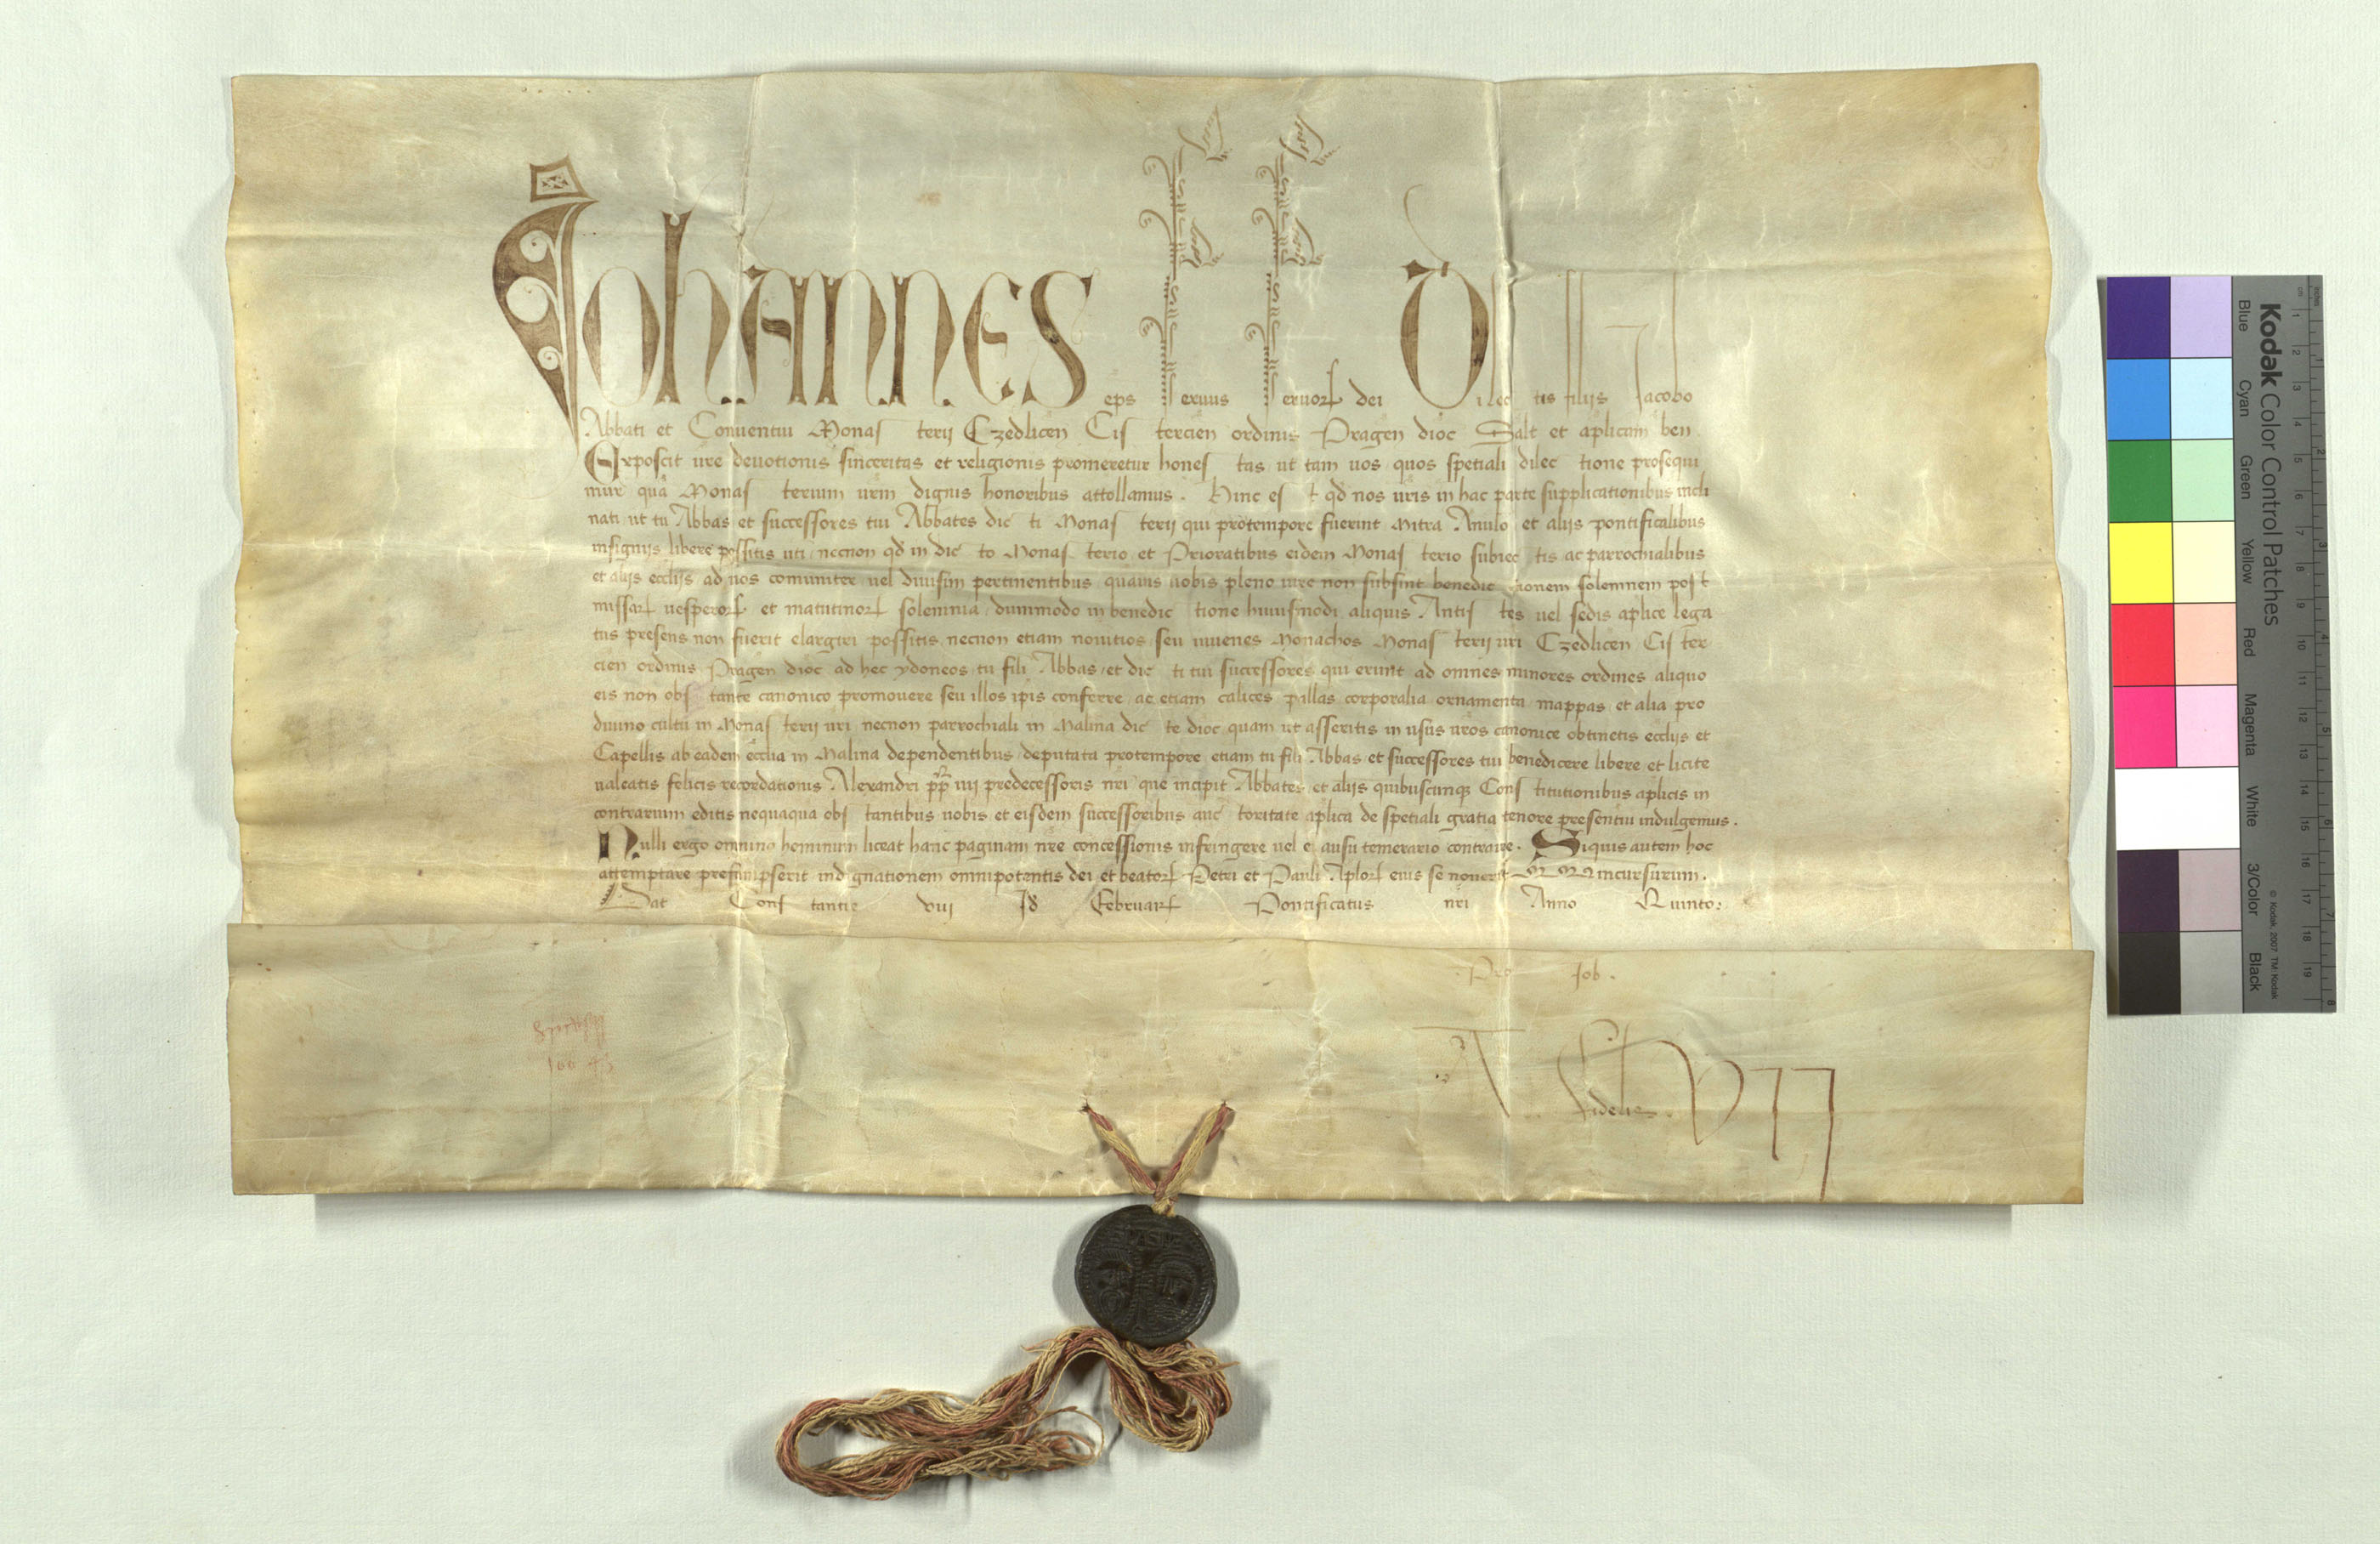 Johannes eps servus servorꝝ dei Dilectis filijs Jacobo
Abbati et Conventui Monasterij Czedlicen Cistercien ordinis Pragen dioc Salt et aplicam ben.
Exposcit vre devotionis sinceritas et religionis promeretur honestas ut tam vos quos spetiali dilectione prosequi
mur qua Monasterium vrm dignis honoribus attollamus. Hinc est qd nos vris in hac parte supplicationibus incli
nati ut tu Abbas et successores tui Abbates dicti Monasterij qui protempore fuerint Mitra Anulo et alijs pontificalibus
insignijs libere possitis uti necnon qd in dicto Monasterio et Prioratibus eidem Monasterio subiectis ac parrochialibus
et alijs ecclijs ad vos comuniter vel divisim pertinentibus quamvis vobis pleno iure non subsint benedictionem solemnem post
missarꝝ vesperorꝝ et matutinorꝝ solemnia dummodo in benedictione huiusmodi aliquis Antistes vel sedis aplice lega
tus presens non fuerit elargiri possitis necnon etiam novitios seu iuvenes Monachos Monasterij vri Czedlicen Cister
cien ordinis Pragen dioc ad hec ydoneos tu fili Abbas et dicti tui successores qui erunt ad omnes minores ordines aliquo
eis non obstante canonico promovere seu illos ipis conferre ac etiam calices pallas corporalia ornamenta mappas et alia pro
divino cultu in Monasterij vri necnon parrochiali in Malina dicte dioc quam ut asseritis in usus vros canonice obtinetis ecclijs et
Capellis ab eadem ecclia in Malina dependentibus deputata protempore etiam tu fili Abbas et successores tui benedicere libere et licite
valeatis felicis recordationis Alexandri pp iiij predecessoris nri que incipit Abbates et alijs quibuscunqꝫ Constitutionibus aplicis in
contrarium editis nequaqua obstantibus vobis et eisdem successoribus auctoritate aplica de spetiali gratia tenore presentiu indulgemus.
Nulli ergo omnino hominum liceat hanc paginam nre concessionis infringere vel ei ausu temerario contraire. Siquis autem hoc
attemptare presumpserit indignationem omnipotentis dei et beatorꝝ Petri et Pauli Aplorꝝ eius se noverit incursurum.
Dat Constantie viij Id Februarꝝ Pontificatus nri Anno Quinto:
Job.
Fidelis.
Kodak Color Control Patches
Blue Cyan Green Yellow Red Magenta White 3/Color Black
© Kodak, 2007 TM: Kodak
cm 1 2 3 4 5 6 7 8 9 10 11 12 13 14 15 16 17 18 19
inches 1 2 3 4 5 6 7 8